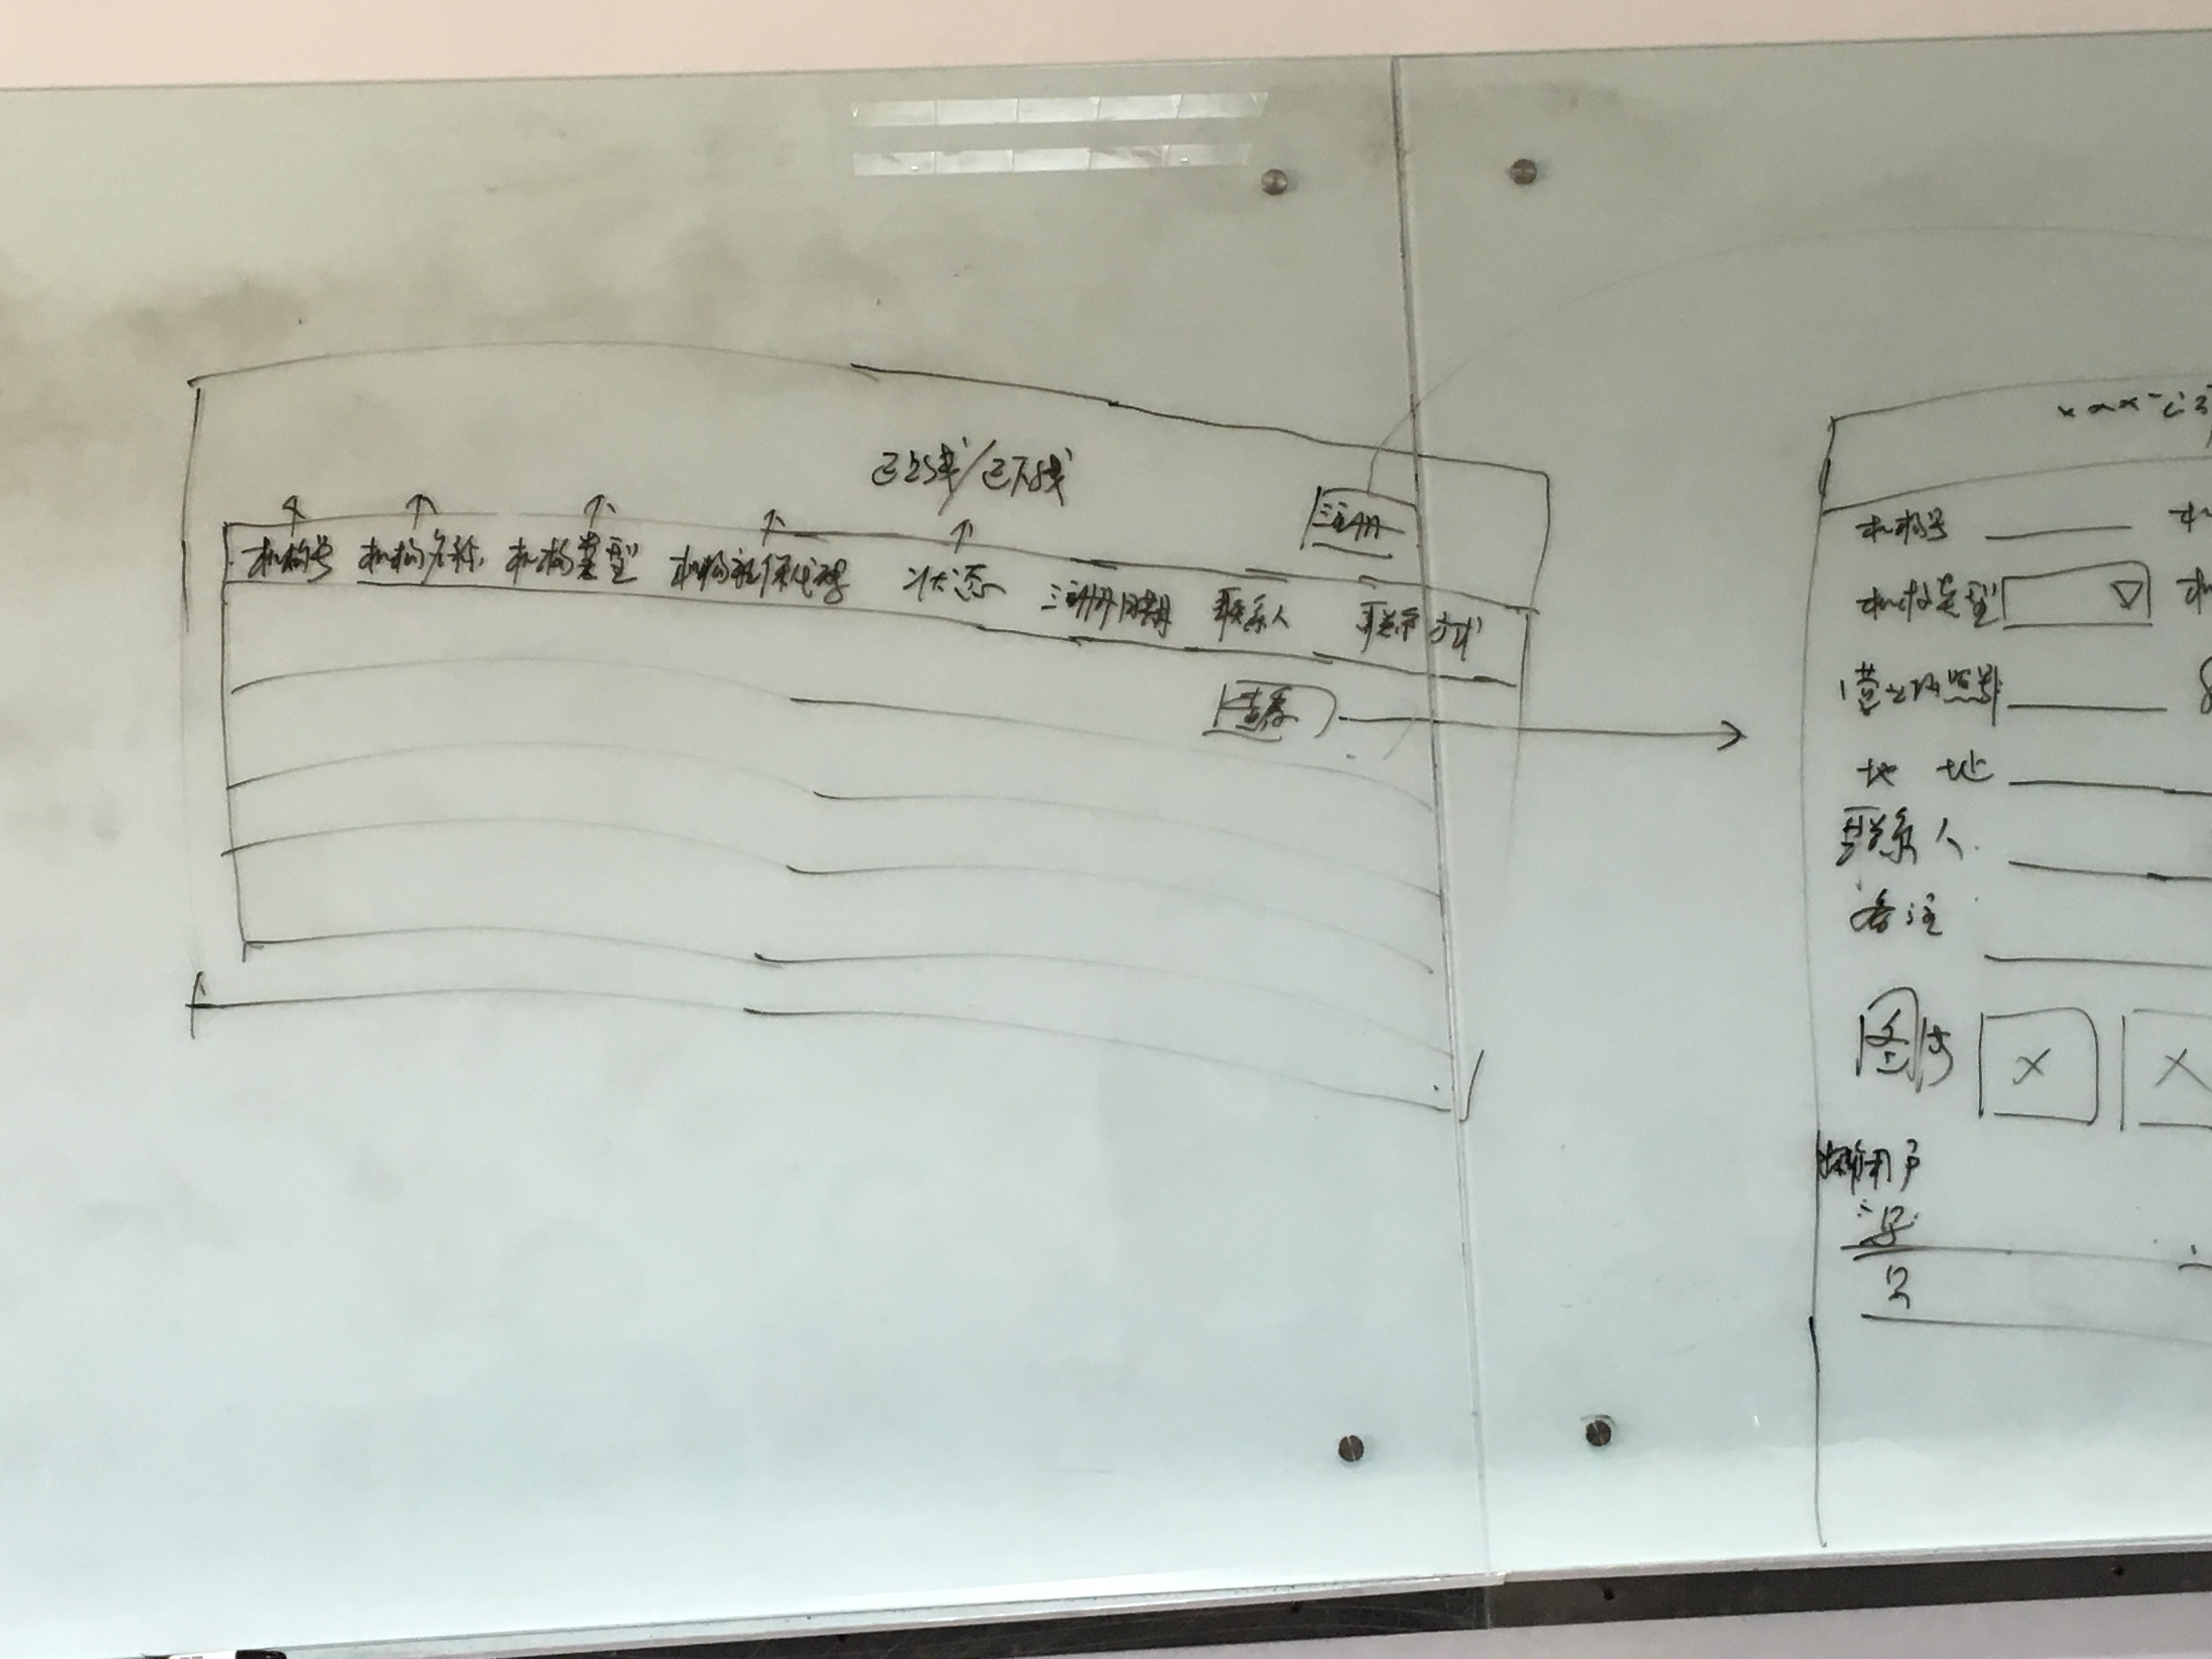 已上线/已下线
注册
机构号 机构名称 机构类型 机构 代码 状态 注册日期 联系人 联系方式
查看
xxx-
机构号
机构类型
营业执照
地 址
联系人
备注
图片 X X
用户